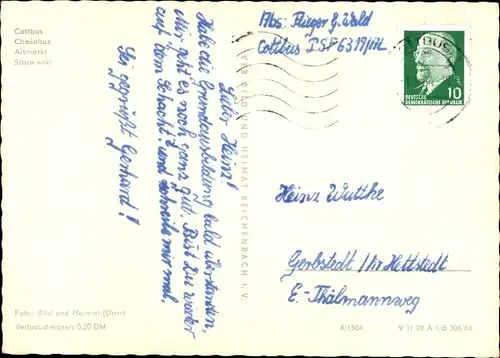 Cottbus
Chośebus
Altmarkt
Stare wiki
Lieber Heinz!
Habe die Grundausbildung bald überstanden,
Mir geht es noch ganz gut. Bist Du wieder
auf dem Schacht? und schreibe mir mal.
Sei gegrüßt Gerhard!
Foto: Bild und Heimat (Darr)
Verbraucherpreis 0,20 DM
VEB BILD UND HEIMAT REICHENBACH i. V.
Abs: Flieger G. Wald
Cottbus PSF 6319/
COTTBUS
10
DEUTSCHE
DEMOKRATISCHE REPUBLIK
Heinz Wuttke
Gerbstedt / Kr Hettstedt
E.-Thälmannweg
6/1504
V 11 28 A 1/B 306/64